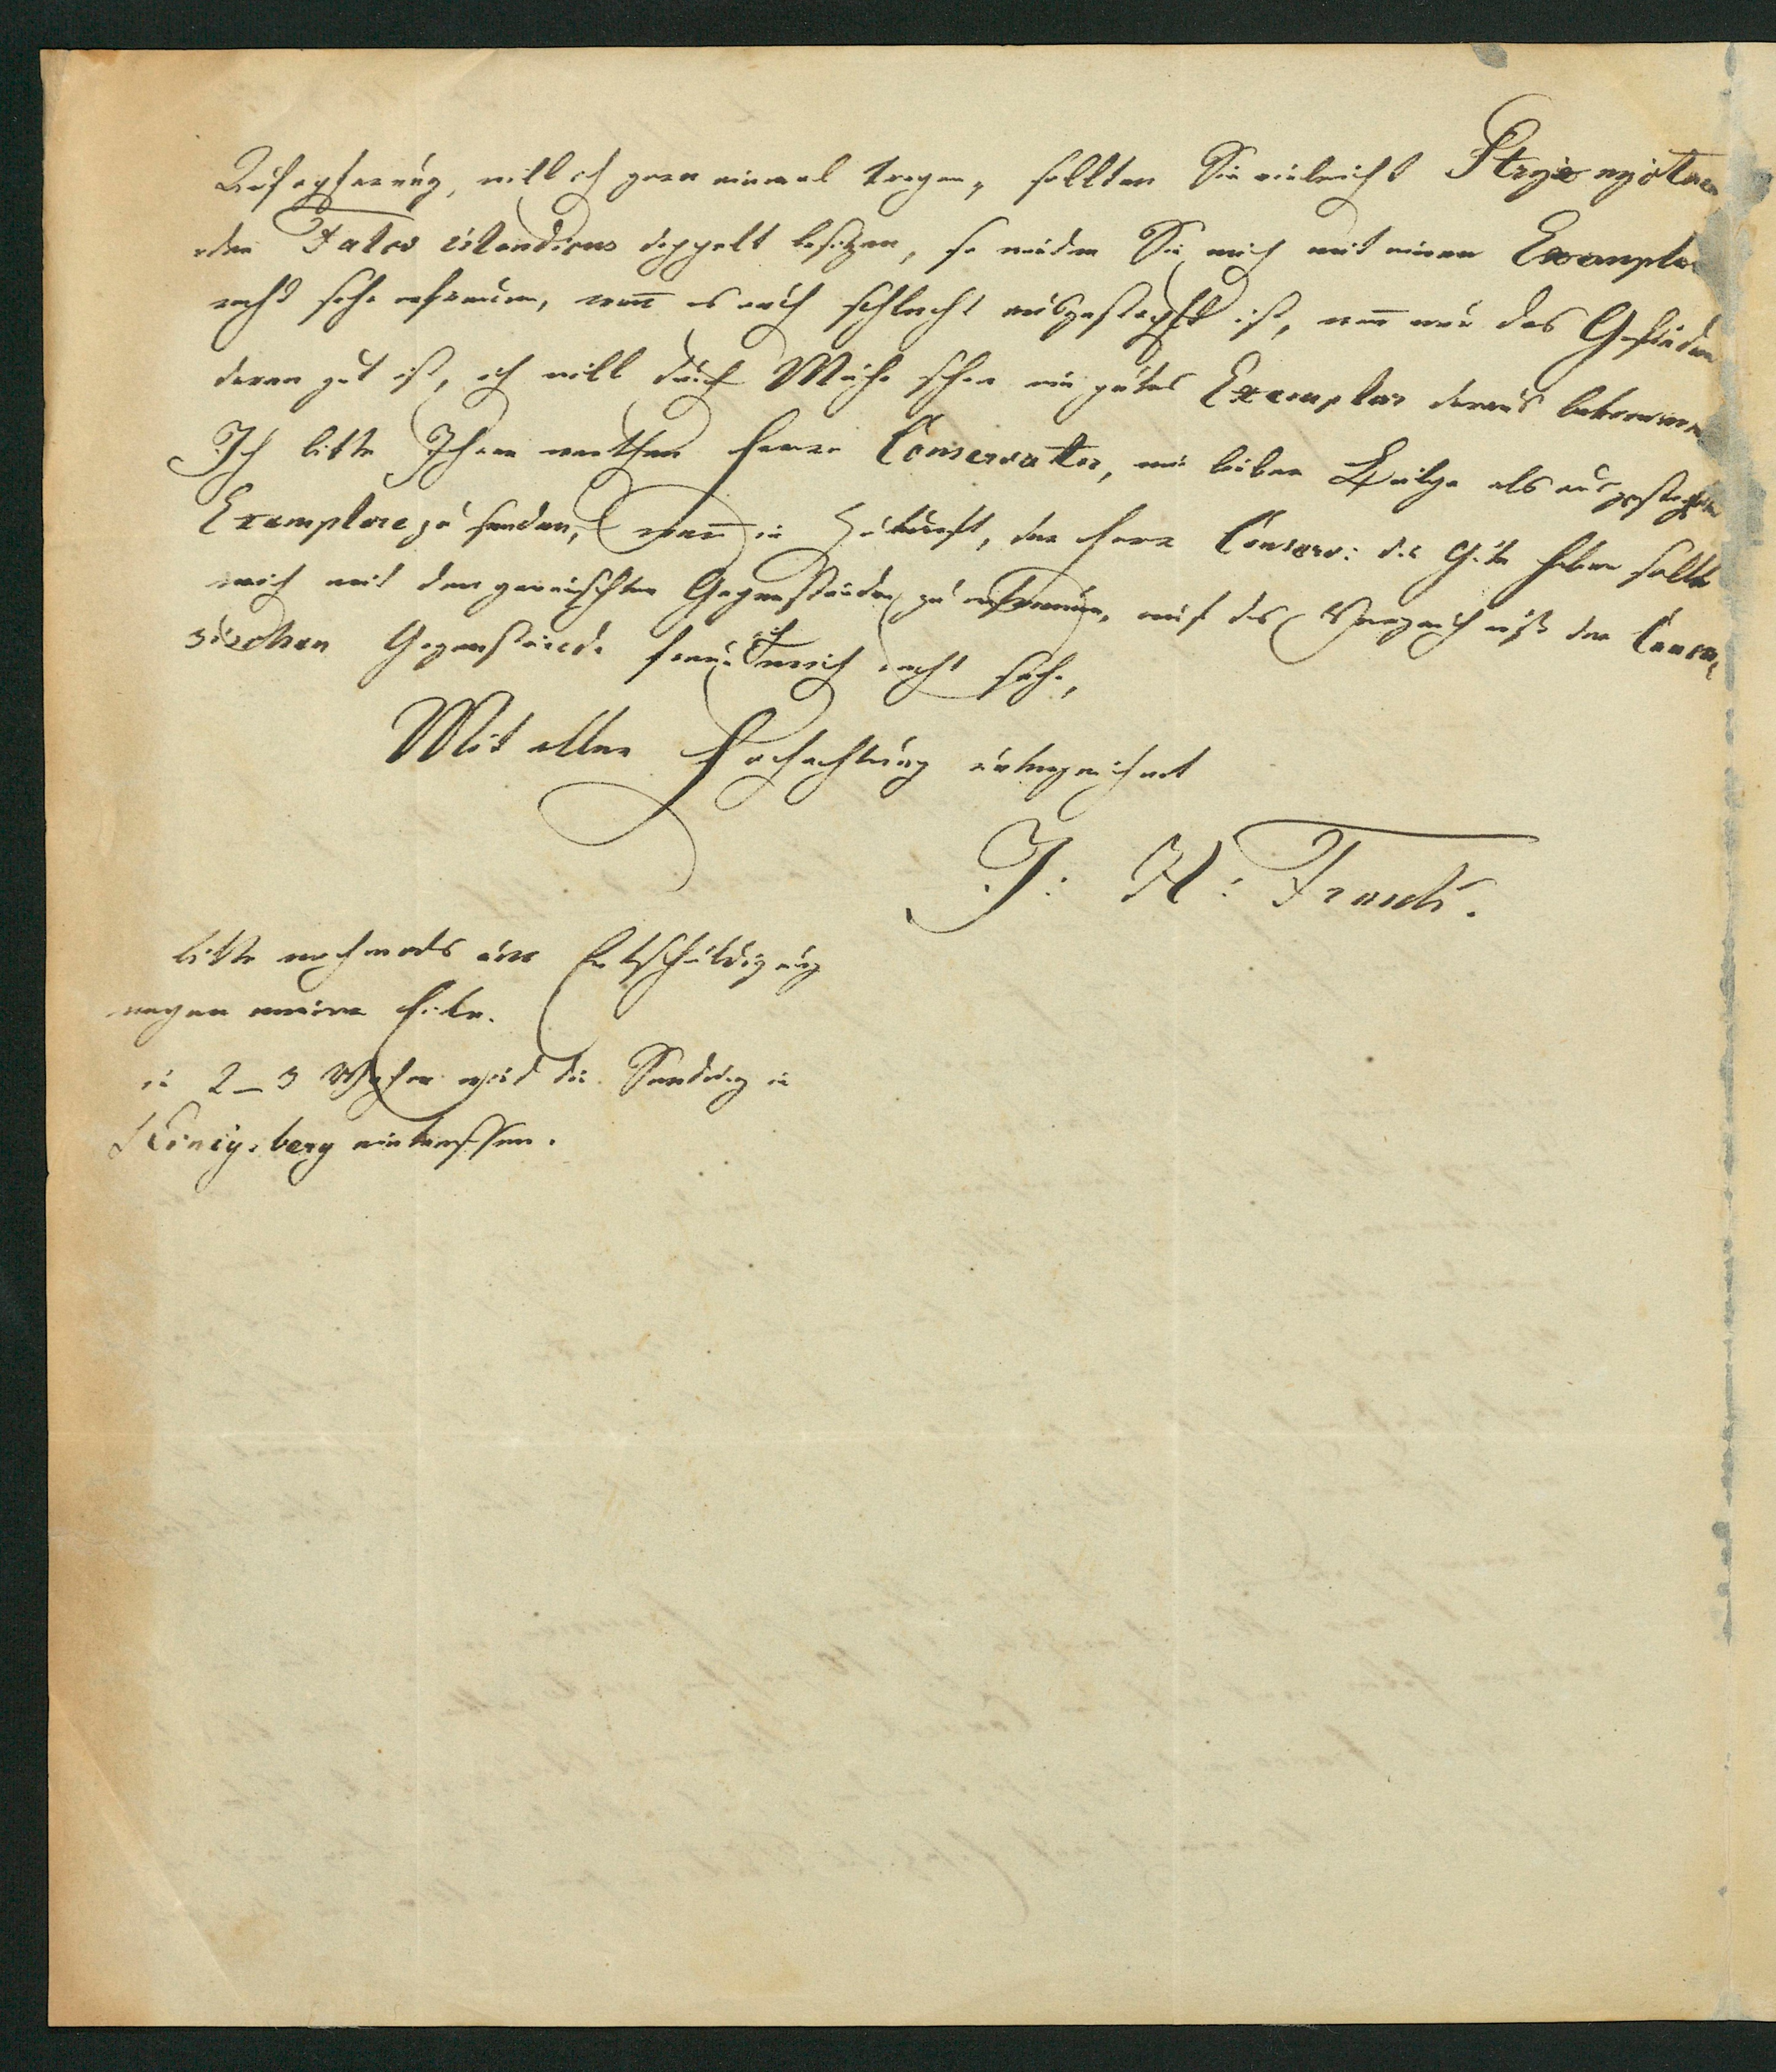 Aufopferung, will ich gern einmal tragen, sollten Sie vieleicht Strix nyctaea
oder Falco islandicus doppelt besitzen, so würden Sie mich mit einem Exemplar
recht sehr erfreuen, wenn es auch schlecht ausgestopft ist, wenn nur das Gefieder
daran gut ist, ich will durch Mühe schon ein gutes Exemplar daraus bekommen
Ich bitte Ihren werthen Herrn Conservator, mir lieber Bälge als ausgestopfte
Exemplare zu senden, wenn in Zukunft, der Herr Conserv: die Güte haben sollte
mich mit den gewünschten Gegenständen zu erfreuen, auf das Verzeichniß der Cauca,
sischen Gegenstände freue ich mich recht sehr,
Mit aller Hochachtung unterzeichnet
J: H: Frank.
bitte nochmals um Entschuldigung
wegen meiner Eile.
in 2–3 Wochen wird die Sendung in
Königsberg eintreffen.